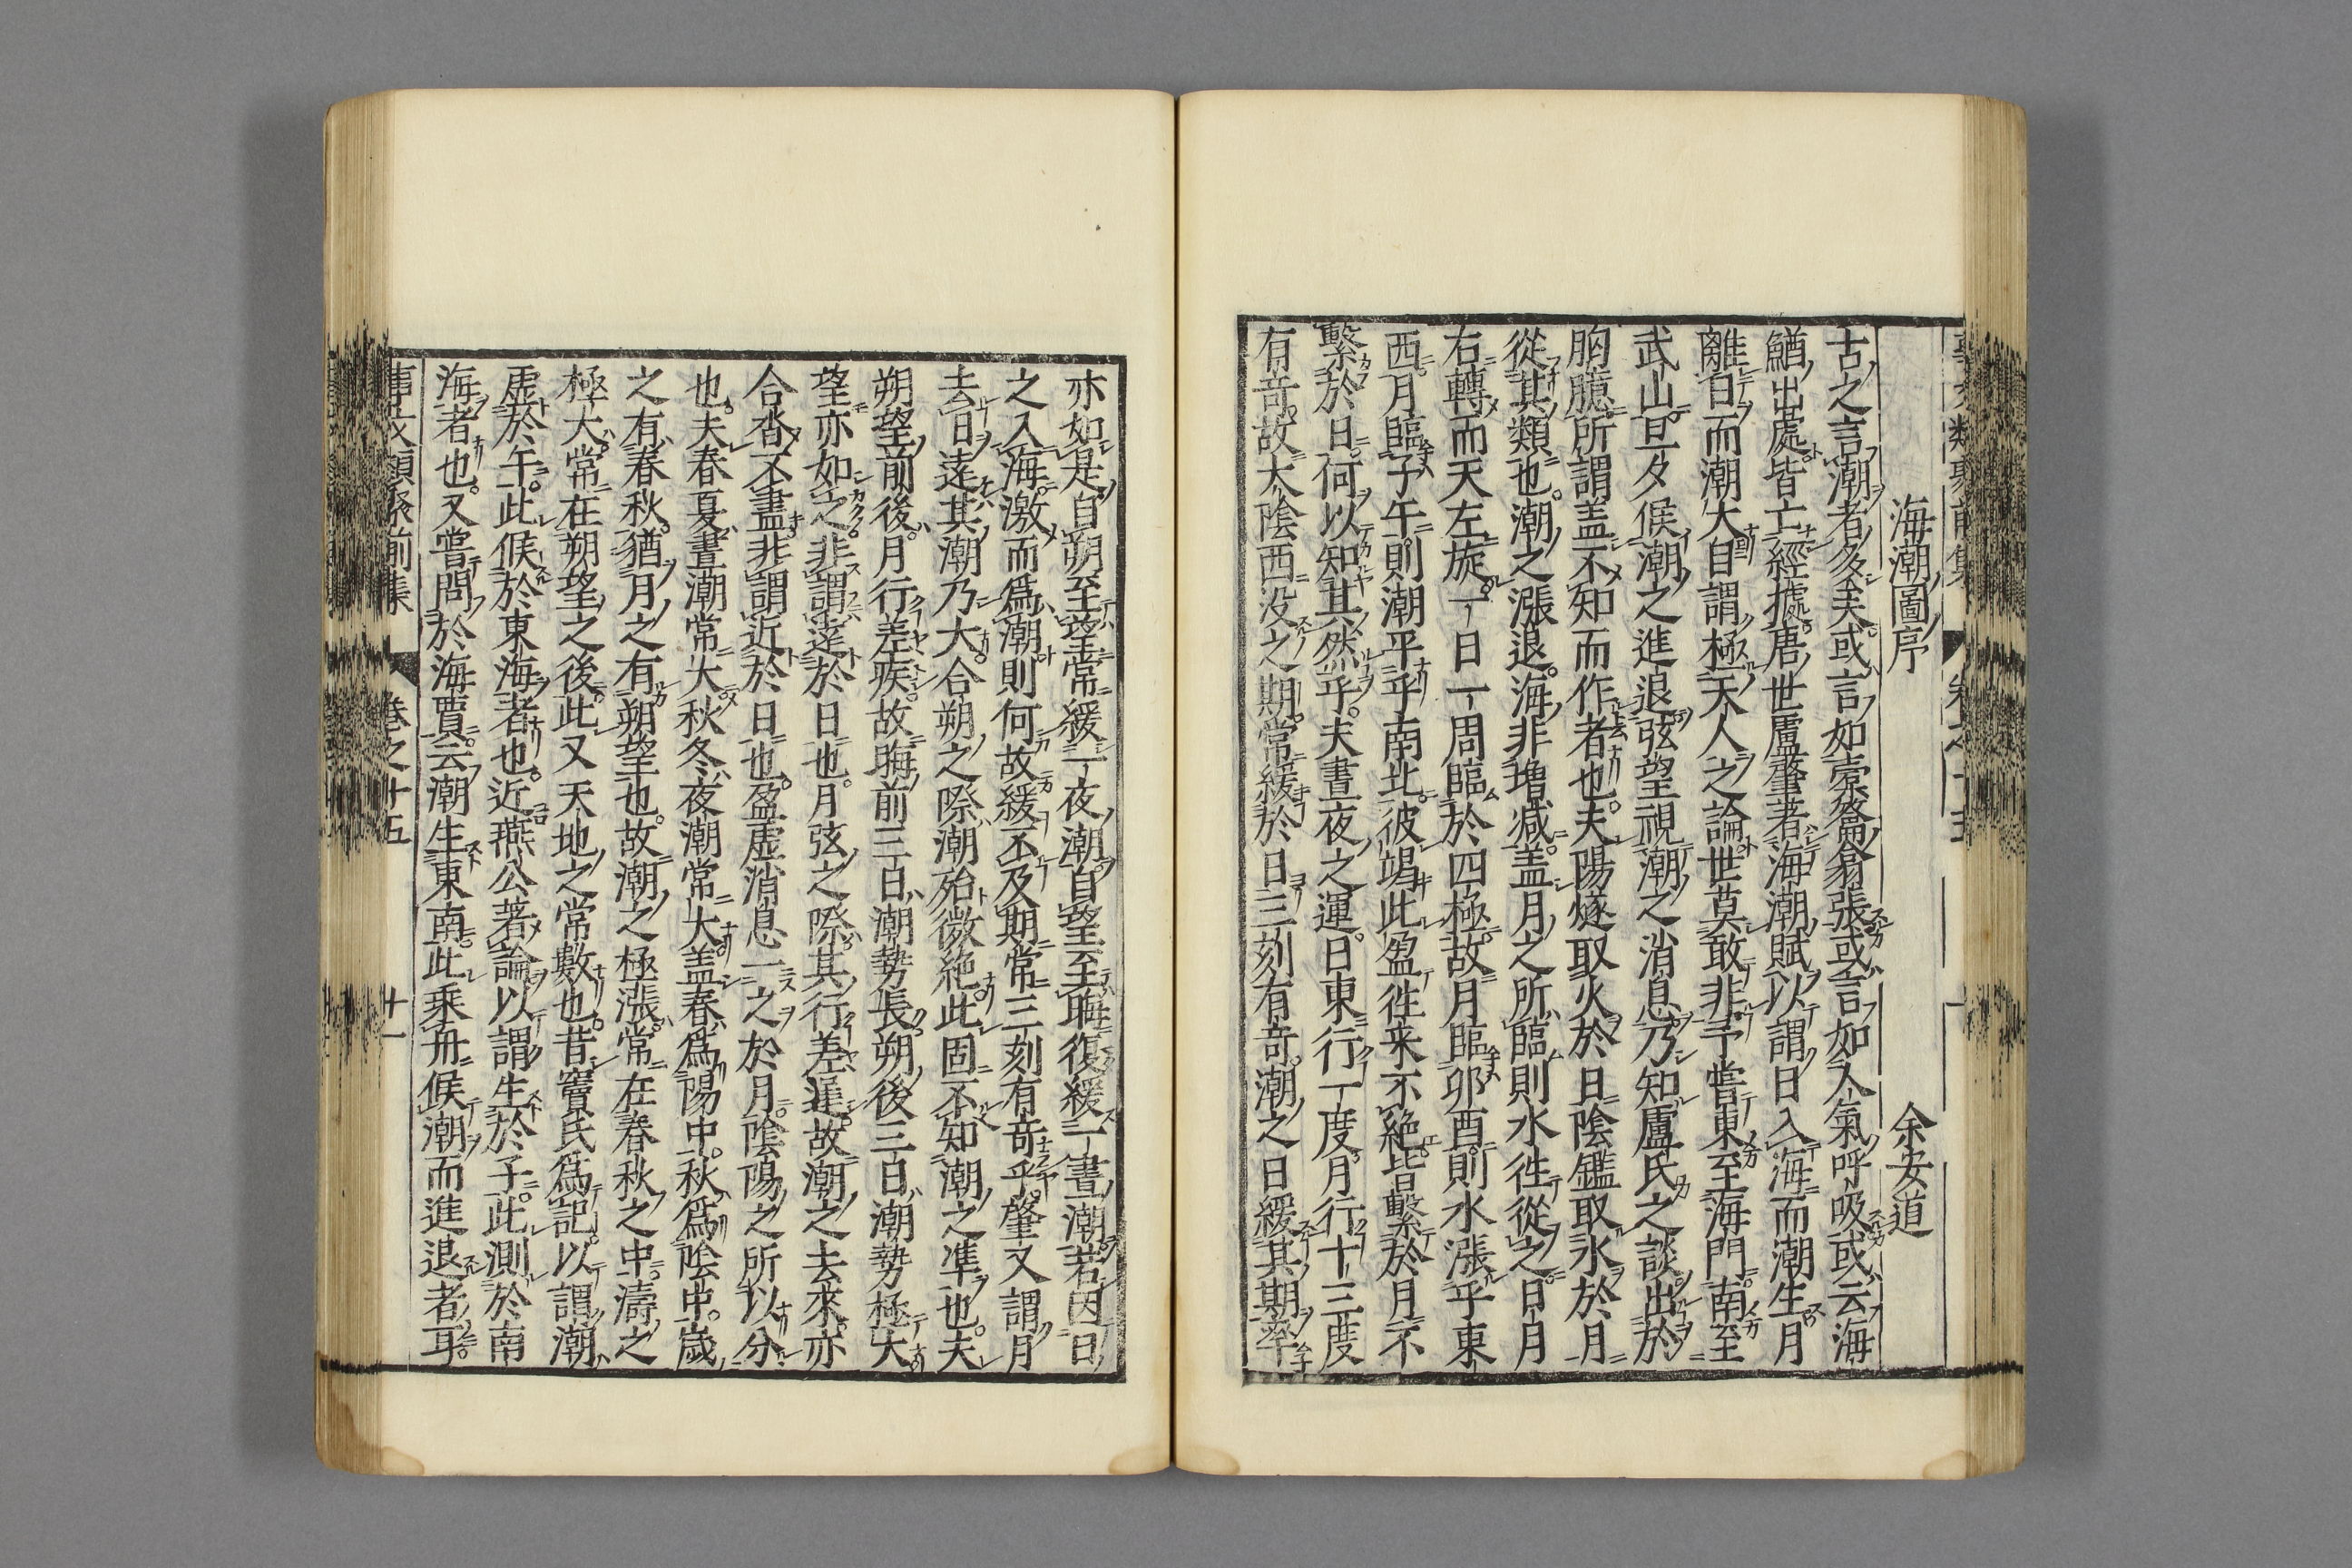 海潮圖序　余安道
古之言潮者多矣或言如橐籥翕張或言如人氣呼吸或云海
鰌出處皆亡經據唐世盧肇著海潮賦以謂日入海而潮生月
離日而潮大自謂極天人之論世莫敢非予嘗東至海門南至
武山旦夕候潮之進退弦望視潮之消息乃知盧氏之談出於
胸臆所謂盖不知而作者也夫陽燧取火於日陰鑑取水於月
從其類也潮之漲退海非增减盖月之所臨則水往從之日月
右轉而天左旋一日一周臨於四極故月臨卯酉則水漲乎東
西月臨子午則潮平乎南北彼竭此盈往来不絶皆繫於月不
繫於日何以知其然乎夫晝夜之運日東行一度月行十三度
有奇故太陰西没之期常緩於日三刻有奇潮之日緩其期率
亦如是自朔至望常緩一夜潮自望至晦復緩一晝潮若因日
之入海激而爲潮則何故緩不及期常三刻有奇乎肇又謂月
去日遠其潮乃大合朔之際潮殆微絶此固不知潮之準也夫
朔望前後月行差疾故晦前三日潮勢長朔後三日潮勢極大
望亦如之非謂逺於日也月弦之際其行差遲故潮之去來亦
合沓不盡非謂近於日也盈虛消息一之於月陰陽之所以分
也夫春夏晝潮常大秋冬夜潮常大盖春爲陽中秋爲陰中歳
之有春秋猶月之有朔望也故潮之極漲常在春秋之中濤之
極大常在朔望之後此又天地之常數也昔竇氏爲記以謂潮
虛於午此候於東海者也近燕公著論以謂生於子此測於南
海者也又嘗問於海賈云潮生東南此乘舟候潮而進退者耳
事文類聚前集　卷之十五　十一